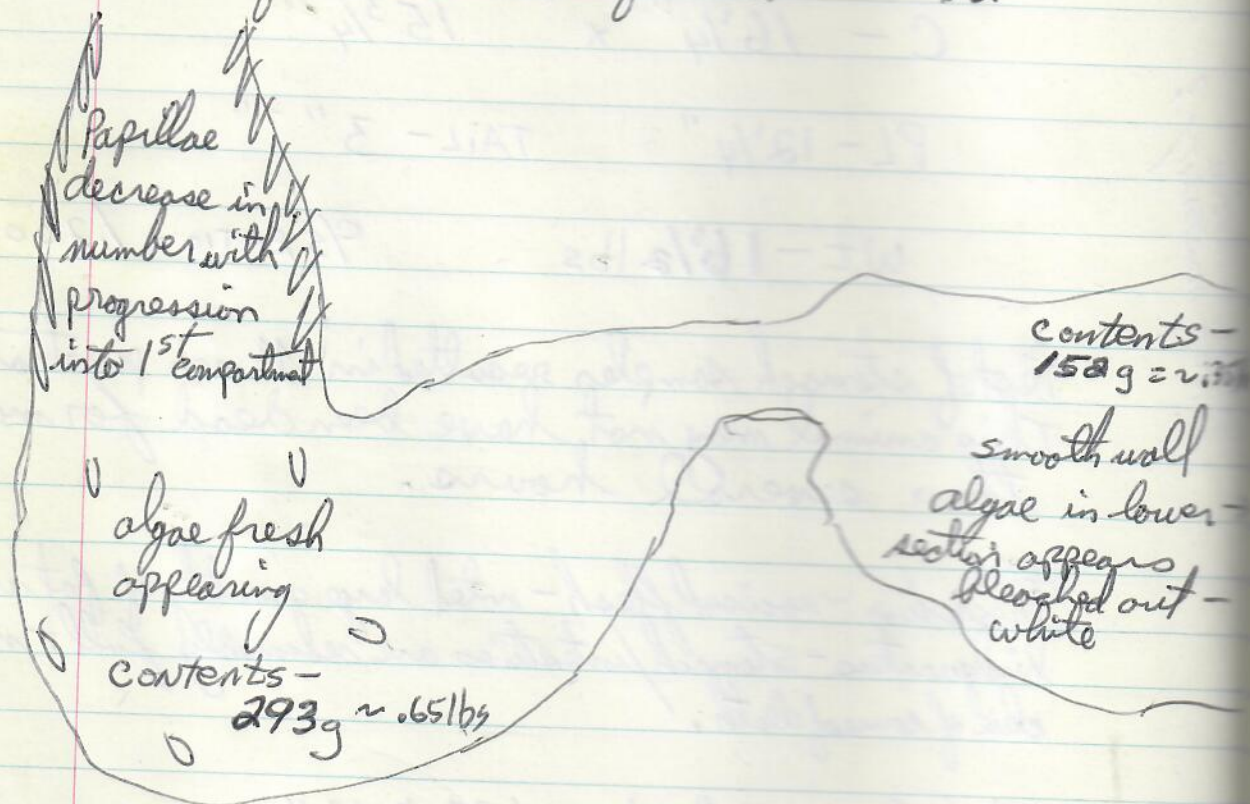 Papillae
decrease in
number with
progression
into 1st compartment
algae fresh
appearing
contents -
293g ~ .65lbs
contents -
152g = ~
smooth wall
algae in lower -
section appears
bleached out -
white